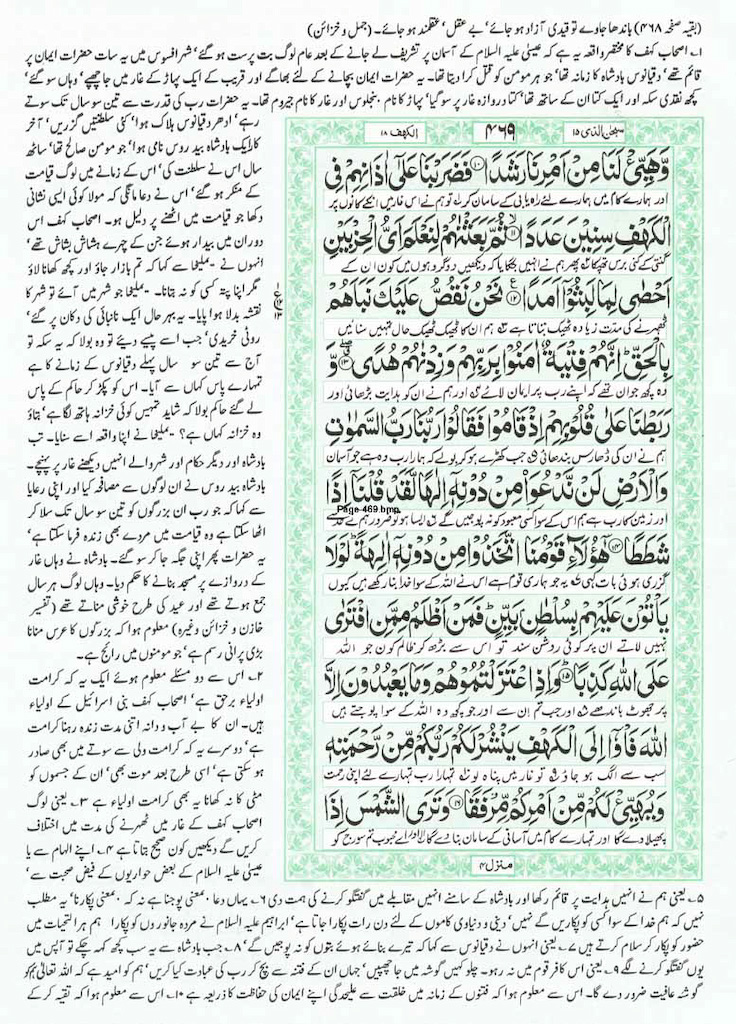 (بقیہ صفحہ ۴۶۸) باندھا جاوے تو قیدی آزاد ہو جائے' بے عقل' عقلمند ہو جائے۔ (جمل و خزائن)
۱۔ اصحاب کہف کا مختصر واقعہ یہ ہے کہ عیسٰی علیہ السلام کے آسمان پر تشریف لے جانے کے بعد عام لوگ بت پرست ہو گئے' شہر افسوس میں یہ سات حضرات ایمان پر
قائم تھے' دقیانوس بادشاہ کا زمانہ تھا' جو ہر مومن کو قتل کرا دیتا تھا۔ یہ حضرات ایمان بچانے کے لئے بھاگے اور قریب کے ایک پہاڑ کے غار میں جا چھپے' وہاں سو گئے'
کچھ نقدی سکہ اور ایک کتا ان کے ساتھ تھا' کتا دروازہ غار پر سو گیا' پہاڑ کا نام بنجلوس اور غار کا نام جیروم تھا۔ یہ حضرات رب کی قدرت سے تین سو سال تک سوتے
رہے' ادھر دقیانوس ہلاک ہوا' کئی سلطنتیں گزریں' آخر
کار ایک بادشاہ بید روس نامی ہوا' جو مومن صالح تھا' ساٹھ
سال اس نے سلطنت کی' اس کے زمانے میں لوگ قیامت
کے منکر ہو گئے' اس نے دعا مانگی کہ مولا کوئی ایسی نشانی
دکھا جو قیامت میں اٹھنے پر دلیل ہو۔ اصحاب کہف اس
دوران میں بیدار ہوئے جن کے چہرے ہشاش بشاش تھے'
انہوں نے ۔ ملیخا سے کہا کہ تم بازار جاؤ اور کچھ کھانا لاؤ
مگر اپنا پتہ کسی کو نہ بتانا۔ ۔ ملیخا جو شہر میں آئے تو شہر کا
نقشہ بدلا ہوا پایا۔ یہ بہرحال ایک نانبائی کی دکان پر گئے'
روٹی خریدی' جب اسے پیسے دیئے تو وہ بولا کہ یہ سکہ تو
آج سے تین سو سال پہلے دقیانوس کے زمانے کا ہے
تمہارے پاس کہاں سے آیا۔ اس کو پکڑ کر حاکم کے پاس
لے گئے حاکم بولا کہ شاید تمہیں کوئی خزانہ ہاتھ لگا ہے' بتاؤ
وہ خزانہ کہاں ہے؟ ۔ ملیخا نے اپنا واقعہ اسے سنایا۔ تب
بادشاہ اور دیگر حکام اور شہر والے انہیں دیکھنے غار پر پہنچے۔
بادشاہ بید روس نے ان لوگوں سے مصافحہ کیا اور اپنی رعایا
سے کہا کہ جو رب ان بزرگوں کو تین سو سال تک سلا کر
اٹھا سکتا ہے وہ قیامت میں مردے بھی زندہ فرما سکتا ہے'
یہ حضرات پھر اپنی جگہ جا کر سو گئے۔ بادشاہ نے وہاں غار
کے دروازے پر مسجد بنانے کا حکم دیا۔ وہاں لوگ ہر سال
جمع ہوتے تھے اور عید کی طرح خوشی مناتے تھے (تفسیر
خازن و خزائن وغیرہ) معلوم ہوا کہ بزرگوں کا عرس منانا
بڑی پرانی رسم ہے' جو مومنوں میں رائج ہے۔
۲۔ اس سے دو مسئلے معلوم ہوئے ایک یہ کہ کرامت
اولیاء برحق ہے' اصحاب کہف بنی اسرائیل کے اولیاء
ہیں۔ ان کا بے آب و دانہ اتنی مدت زندہ رہنا کرامت
ہے' دوسرے یہ کہ کرامت ولی سے سوتے میں بھی صادر
ہو سکتی ہے' اسی طرح بعد موت بھی' ان کے جسموں کو
مٹی کا نہ کھانا یہ بھی کرامت اولیاء ہے ۳۔ یعنی لوگ
اصحاب کہف کے غار میں ٹھہرنے کی مدت میں اختلاف
کریں گے دیکھیں کون صحیح بتاتا ہے ۴۔ اپنے الہام سے یا
عیسٰی علیہ السلام کے بعض حواریوں کے فیض صحبت سے'
سبحٰن الذی ۱۵
۴۶۹
الکہف ۱۸
وَّهَيِّئْ لَنَا مِنْ اَمْرِنَا رَشَدًا ﴿۱۰﴾ فَضَرَبْنَا عَلٰٓى اٰذَانِهِمْ فِى
اور ہمارے کام میں ہمارے لئے راہ یابی کے سامان کر ۱ تو ہم نے اس غار میں انکے کانوں پر
الْكَهْفِ سِنِيْنَ عَدَدًا ﴿۱۱﴾ ثُمَّ بَعَثْنٰهُمْ لِنَعْلَمَ اَىُّ الْحِزْبَيْنِ
گنتی کے کئی برس تھپکا ۲ پھر ہم نے انہیں جگایا کہ دیکھیں دو گروہوں میں کون ان کے
اَحْصٰى لِمَا لَبِثُوْٓا اَمَدًا ﴿۱۲﴾ نَحْنُ نَقُصُّ عَلَيْكَ نَبَاَهُمْ
ٹھہرنے کی مدت زیادہ ٹھیک بتاتا ہے ۳ ہم ان کا ٹھیک ٹھیک حال تمہیں سنائیں
بِالْحَقِّ اِنَّهُمْ فِتْيَةٌ اٰمَنُوْا بِرَبِّهِمْ وَزِدْنٰهُمْ هُدًى ﴿۱۳﴾ وَّ
وہ کچھ جوان تھے کہ اپنے رب پر ایمان لائے ۴ اور ہم نے ان کو ہدایت بڑھائی اور
رَبَطْنَا عَلٰى قُلُوْبِهِمْ اِذْ قَامُوْا فَقَالُوْا رَبُّنَا رَبُّ السَّمٰوٰتِ
ہم نے ان کی ڈھارس بندھائی ۵ جب کھڑے ہو کر بولے کہ ہمارا رب وہ ہے جو آسمان
وَالْاَرْضِ لَنْ نَّدْعُوَا۟ مِنْ دُوْنِهٖٓ اِلٰهًا لَّقَدْ قُلْنَآ اِذًا
Page-469.bmp
اور زمین کا رب ہے ہم اس کے سوا کسی معبود کو نہ پوجیں گے ۶ ایسا ہو تو ضرور ہم نے حد سے
شَطَطًا ﴿۱۴﴾ هٰٓؤُلَآءِ قَوْمُنَا اتَّخَذُوْا مِنْ دُوْنِهٖٓ اٰلِهَةً لَوْلَا
گزری ہوئی بات کہی ۷ یہ جو ہماری قوم ہے اس نے اللہ کے سوا خدا بنا رکھے ہیں کیوں
يَاْتُوْنَ عَلَيْهِمْ بِسُلْطٰنٍۭ بَيِّنٍ فَمَنْ اَظْلَمُ مِمَّنِ افْتَرٰى
نہیں لاتے ان پر کوئی روشن سند تو اس سے بڑھ کر ظالم کون جو اللہ
عَلَى اللّٰهِ كَذِبًا ﴿۱۵﴾ وَاِذِ اعْتَزَلْتُمُوْهُمْ وَمَا يَعْبُدُوْنَ اِلَّا
پر جھوٹ باندھے ۸ اور جب تم ان سے اور جو کچھ وہ اللہ کے سوا پوجتے ہیں
اللّٰهَ فَاْوٗٓا اِلَى الْكَهْفِ يَنْشُرْ لَكُمْ رَبُّكُمْ مِّنْ رَّحْمَتِهٖ
سب سے الگ ہو جاؤ ۹ تو غار میں پناہ لو تمہارا رب تمہارے لئے اپنی رحمت
وَيُهَيِّئْ لَكُمْ مِّنْ اَمْرِكُمْ مِّرْفَقًا ﴿۱۶﴾ وَتَرَى الشَّمْسَ اِذَا
پھیلا دے گا اور تمہارے کام میں آسانی کے سامان بنا دے گا ۱۰ اور اے محبوب تم سورج کو
منزل ۴
۵۔ یعنی ہم نے انہیں ہدایت پر قائم رکھا اور بادشاہ کے سامنے انہیں مقابلے میں گفتگو کرنے کی ہمت دی ۶۔ یہاں دعا ،بمعنی پوجنا ہے نہ کہ ،بمعنی پکارنا' یہ مطلب
نہیں کہ ہم خدا کے سوا کسی کو پکاریں گے نہیں' دینی و دنیاوی کاموں کے لئے دن رات پکارا جاتا ہے' ابراہیم علیہ السلام نے مردہ جانوروں کو پکارا ہم ہر التحیات میں
حضور کو پکار کر سلام کرتے ہیں ۷۔ یعنی انہوں نے دقیانوس سے کہا کہ تیرے بنائے ہوئے بتوں کو نہ پوجیں گے' ۸۔ جب بادشاہ سے یہ سب کچھ کہہ چکے تو آپس میں
یوں گفتگو کرنے لگے ۹۔ یعنی اس کافر قوم میں نہ رہو۔ چلو کہیں گوشہ میں جا چھپیں' جہاں ان کے فتنہ سے بچ کر رب کی عبادت کیا کریں' ہم کو امید ہے کہ اللہ تعالٰی ہم کو
گوشہ عافیت ضرور دے گا۔ اس سے معلوم ہوا کہ فتنوں کے زمانہ میں خلقت سے علیحدگی اپنے ایمان کی حفاظت کا ذریعہ ہے ۱۰۔ اس سے معلوم ہوا کہ تقیہ کرکے